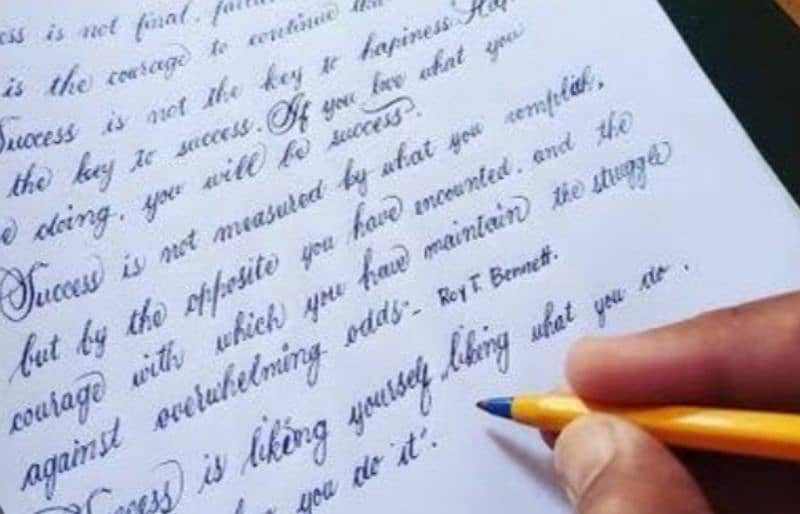 is not final.
is the courage to continue
Success is not the key to hapiness.
the key to success. If you love what you
doing. you will be success.
Success is not measured by what you complish,
but by the opposite you have encounted. and the
courage with which you have maintain the struggle
against overwhelming odds - Roy T. Bennett.
is liking yourself, liking what you do.
you do it".